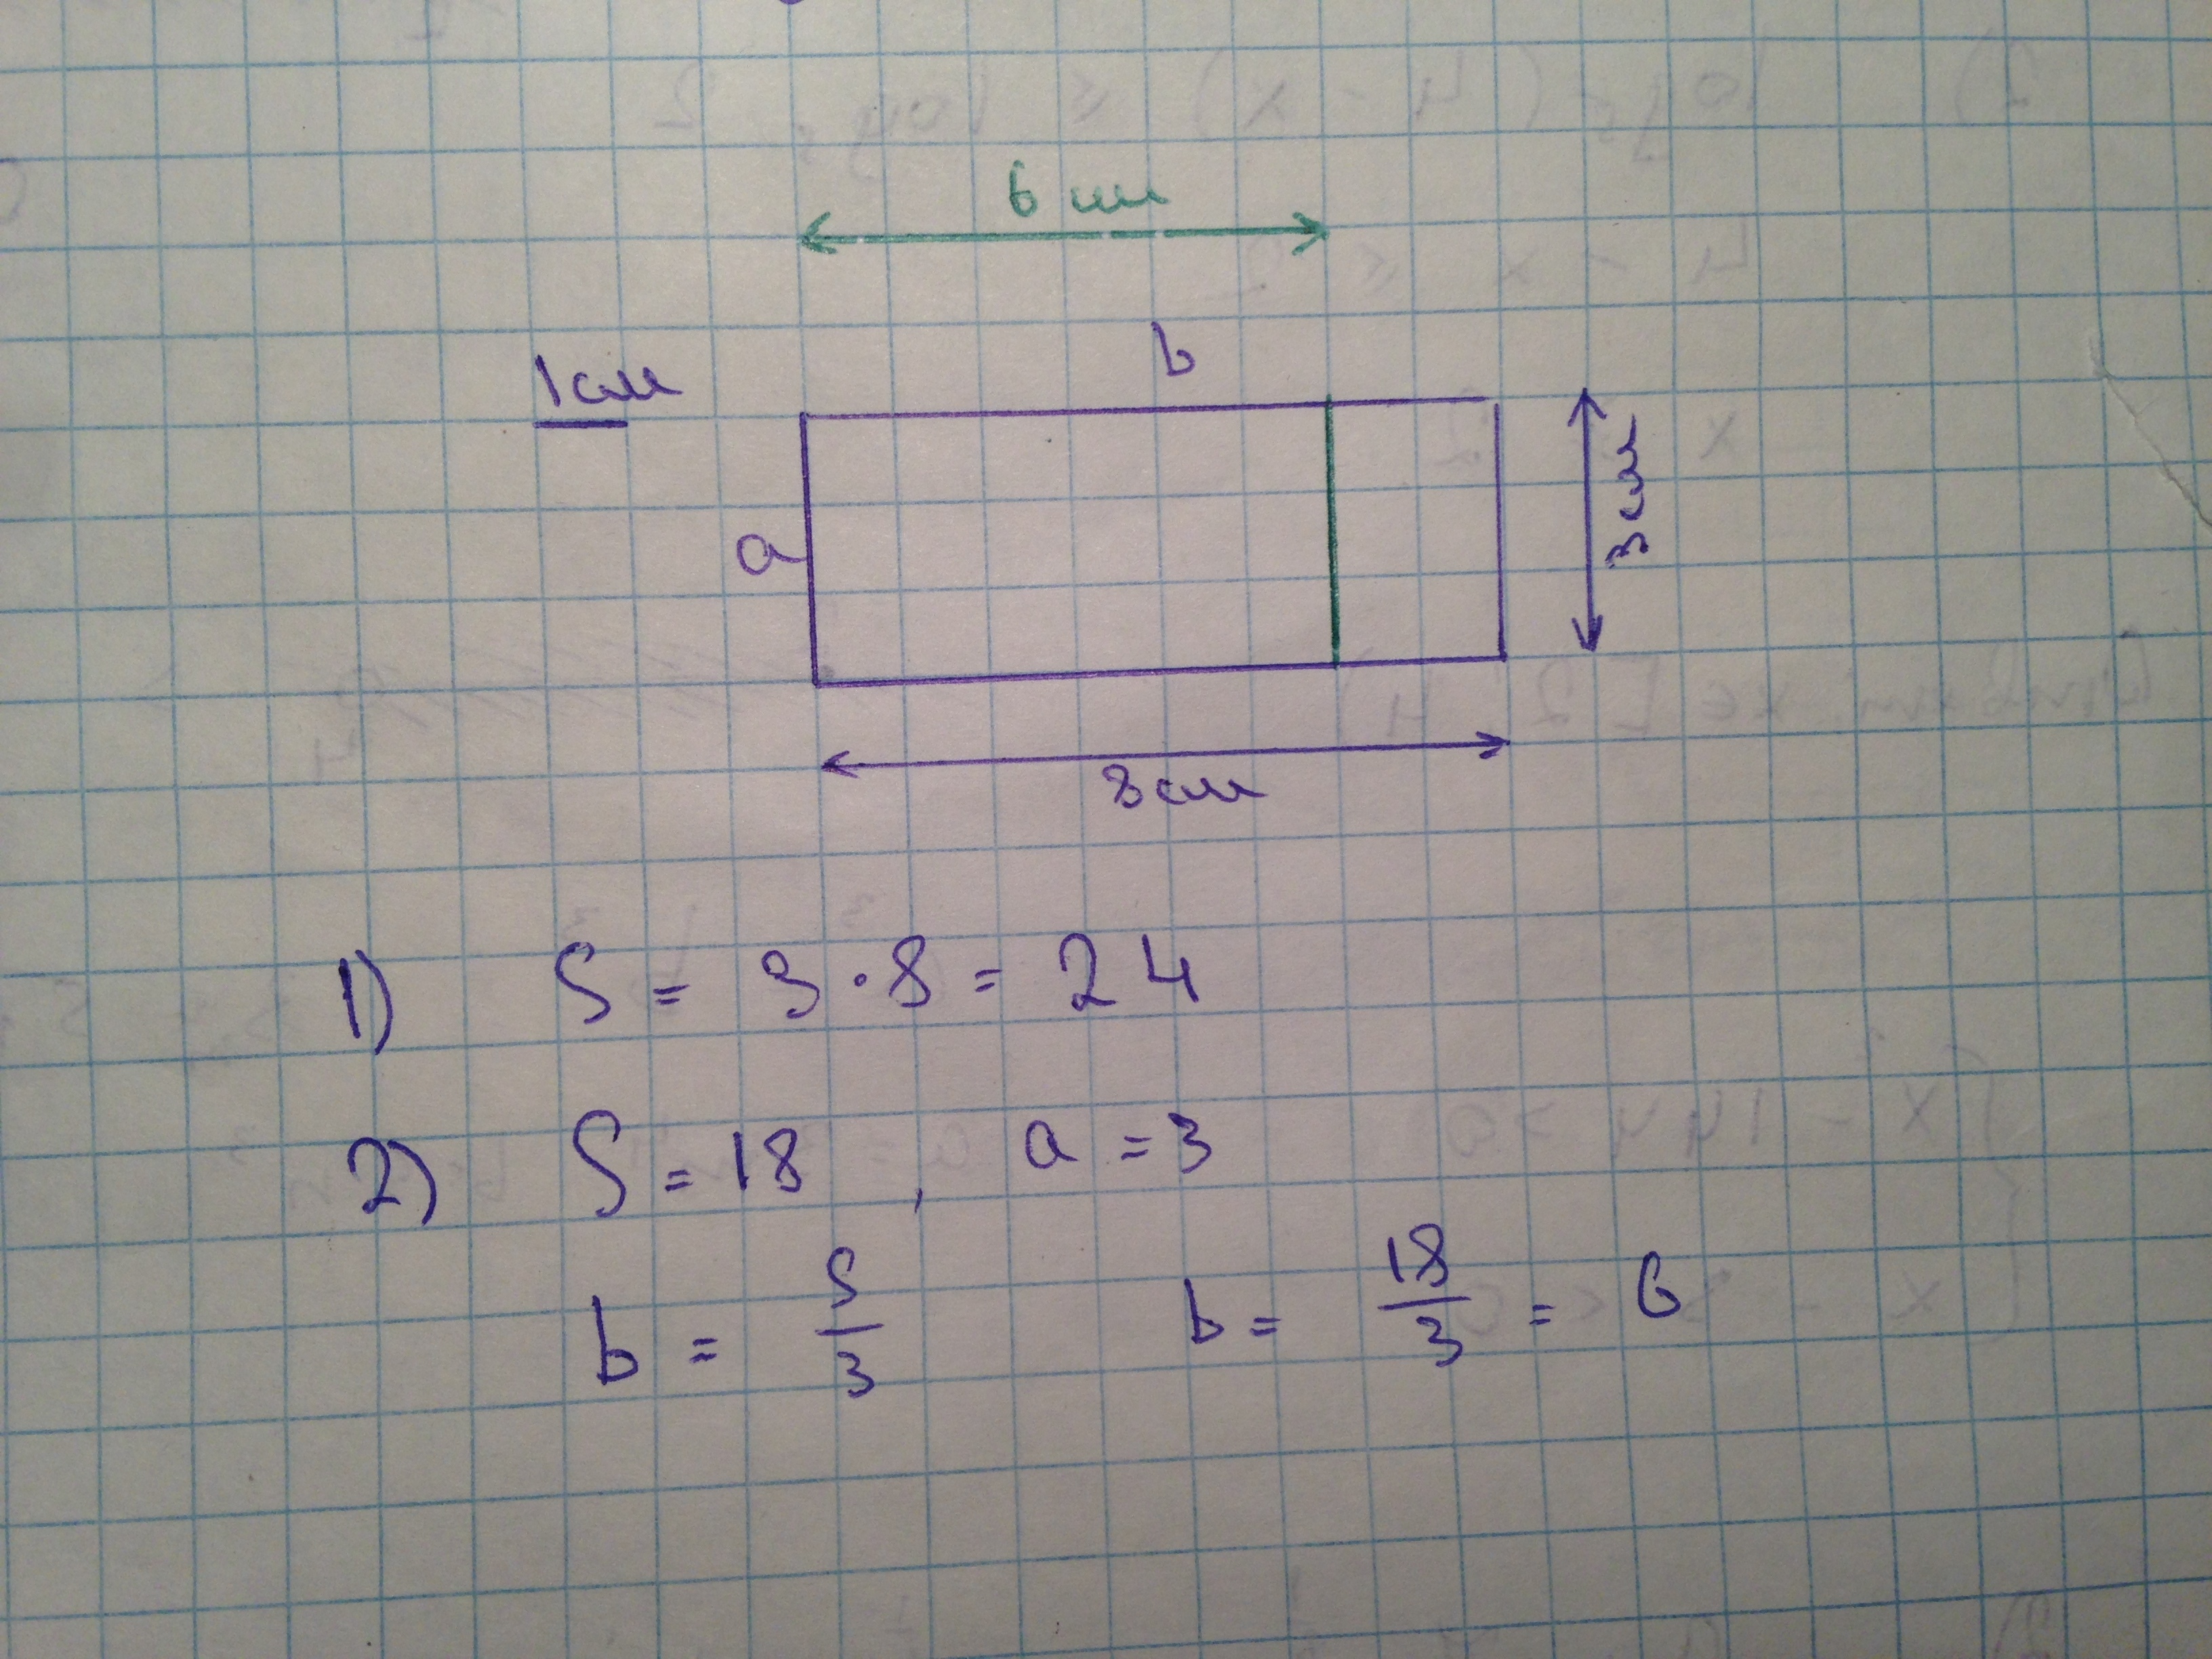 6 см
b
1 см
a
3 см
8 см
1) S = 3 · 8 = 24
2) S = 18 , a = 3
b = S/3 b = 18/3 = 6